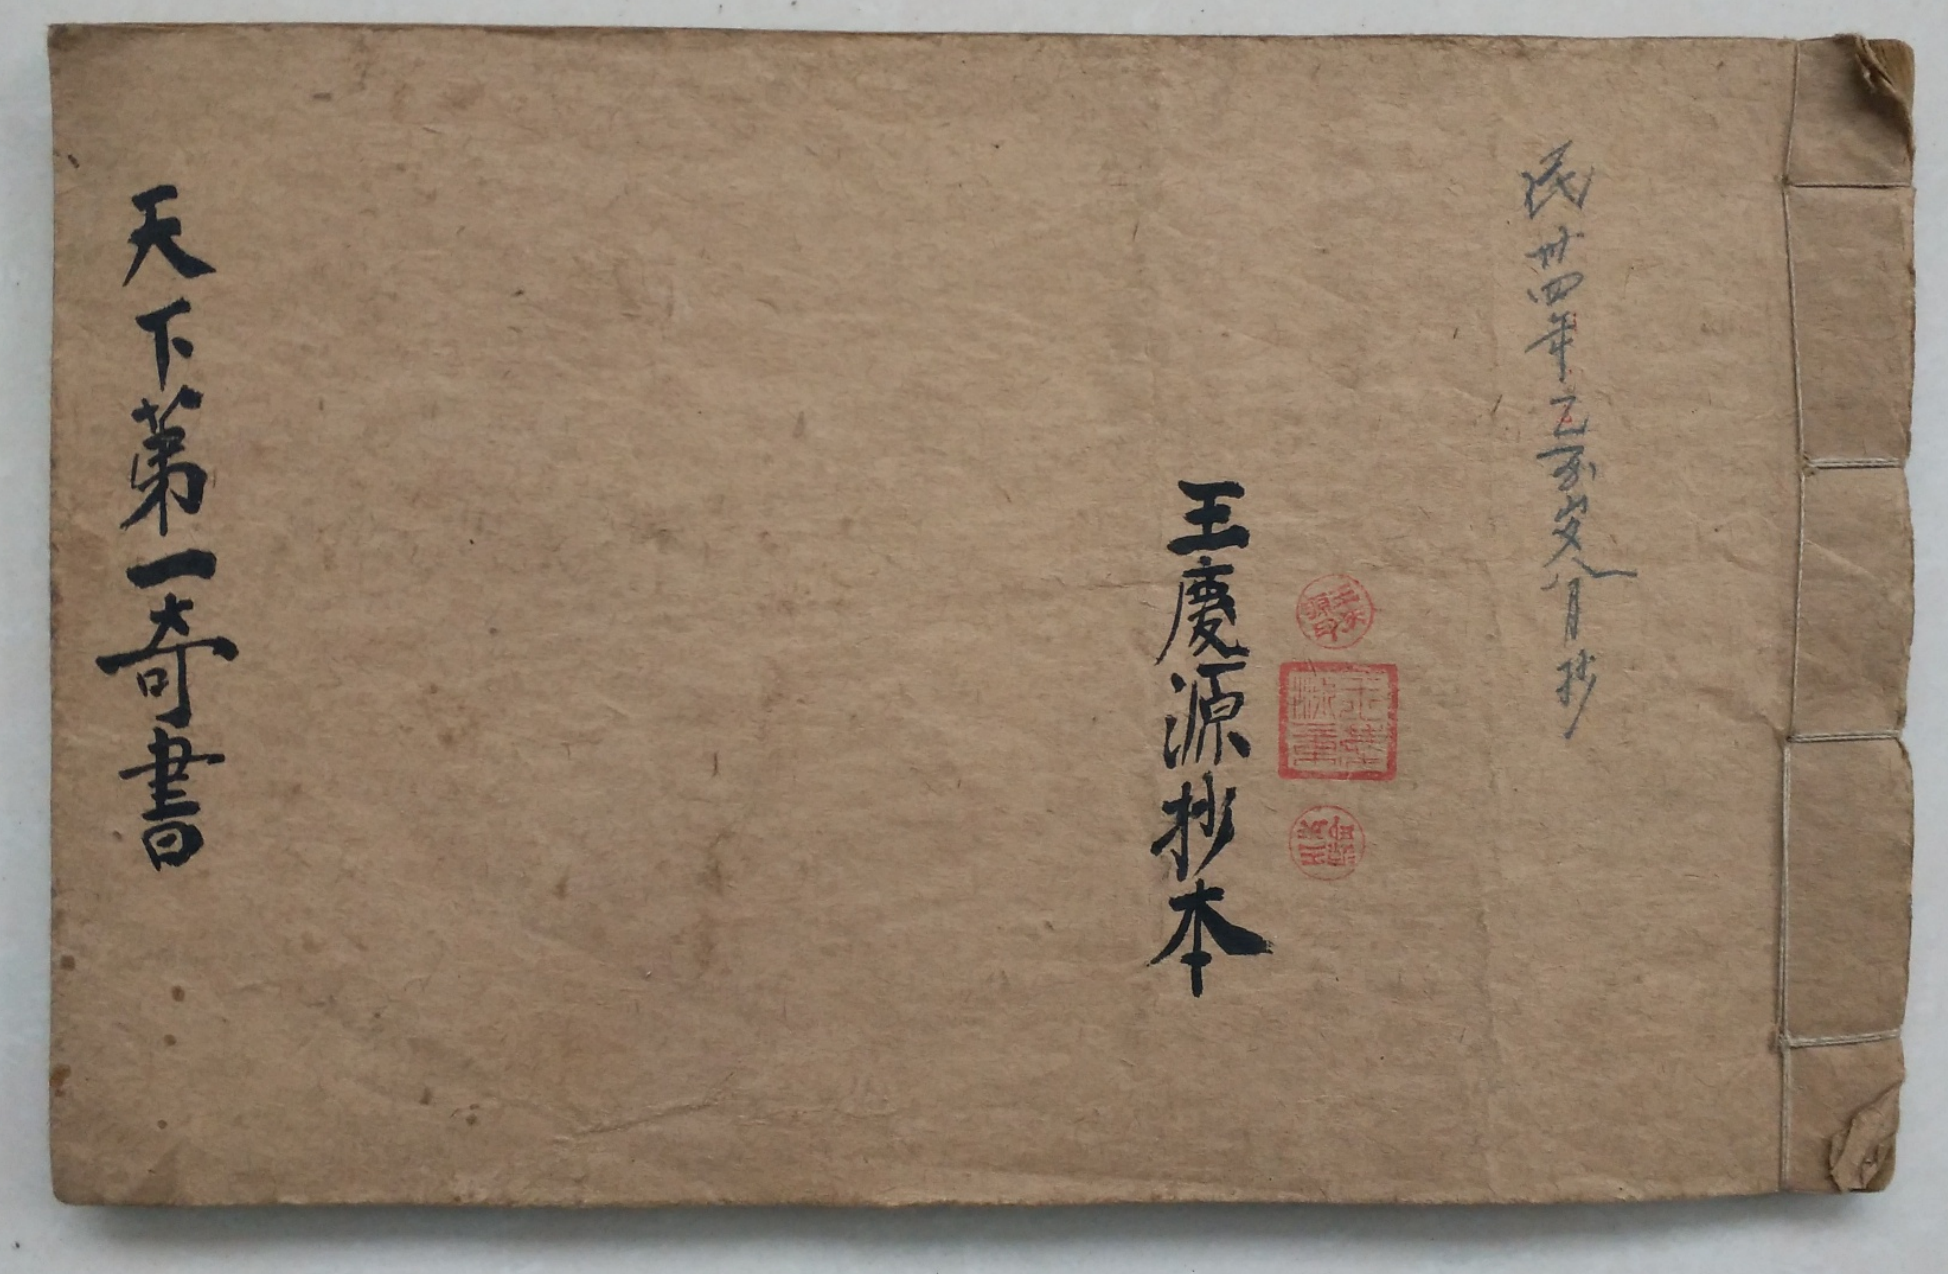 民卅四年乙酉岁八月抄
王慶源抄本
天下第一奇書